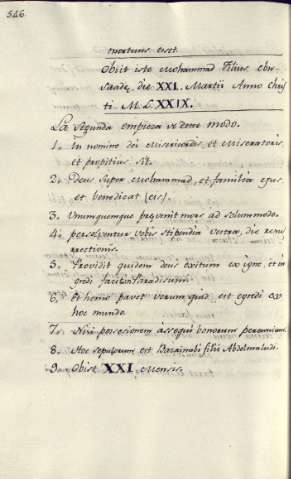 546.
mortuus esset
Obiit iste Mohammad Filius ebn
Saade, die XXI. Martii Anno Chris
ti M. L. XXIX.
La Segunda empieza de este modo.
1. In nomine dei Misericordis, et Miseratoris,
et propitius sit.
2. Deus super Mohammad, et familia ejus,
et benedicat (eis).
3. Unumquemque mors ad solummodo.
4. persolventur vobis stipendia vestra, die resu
rrectionis.
5. Providit quidem deus exitum ex igne, et in
gredi Paradisum.
6. Et homo pavet verum quid est egredi ex
hoc mundo
7. Nisi possessionem assequi bonorum
8. Hoc sepulcrum est filii
9. Obiit XXI mensis.